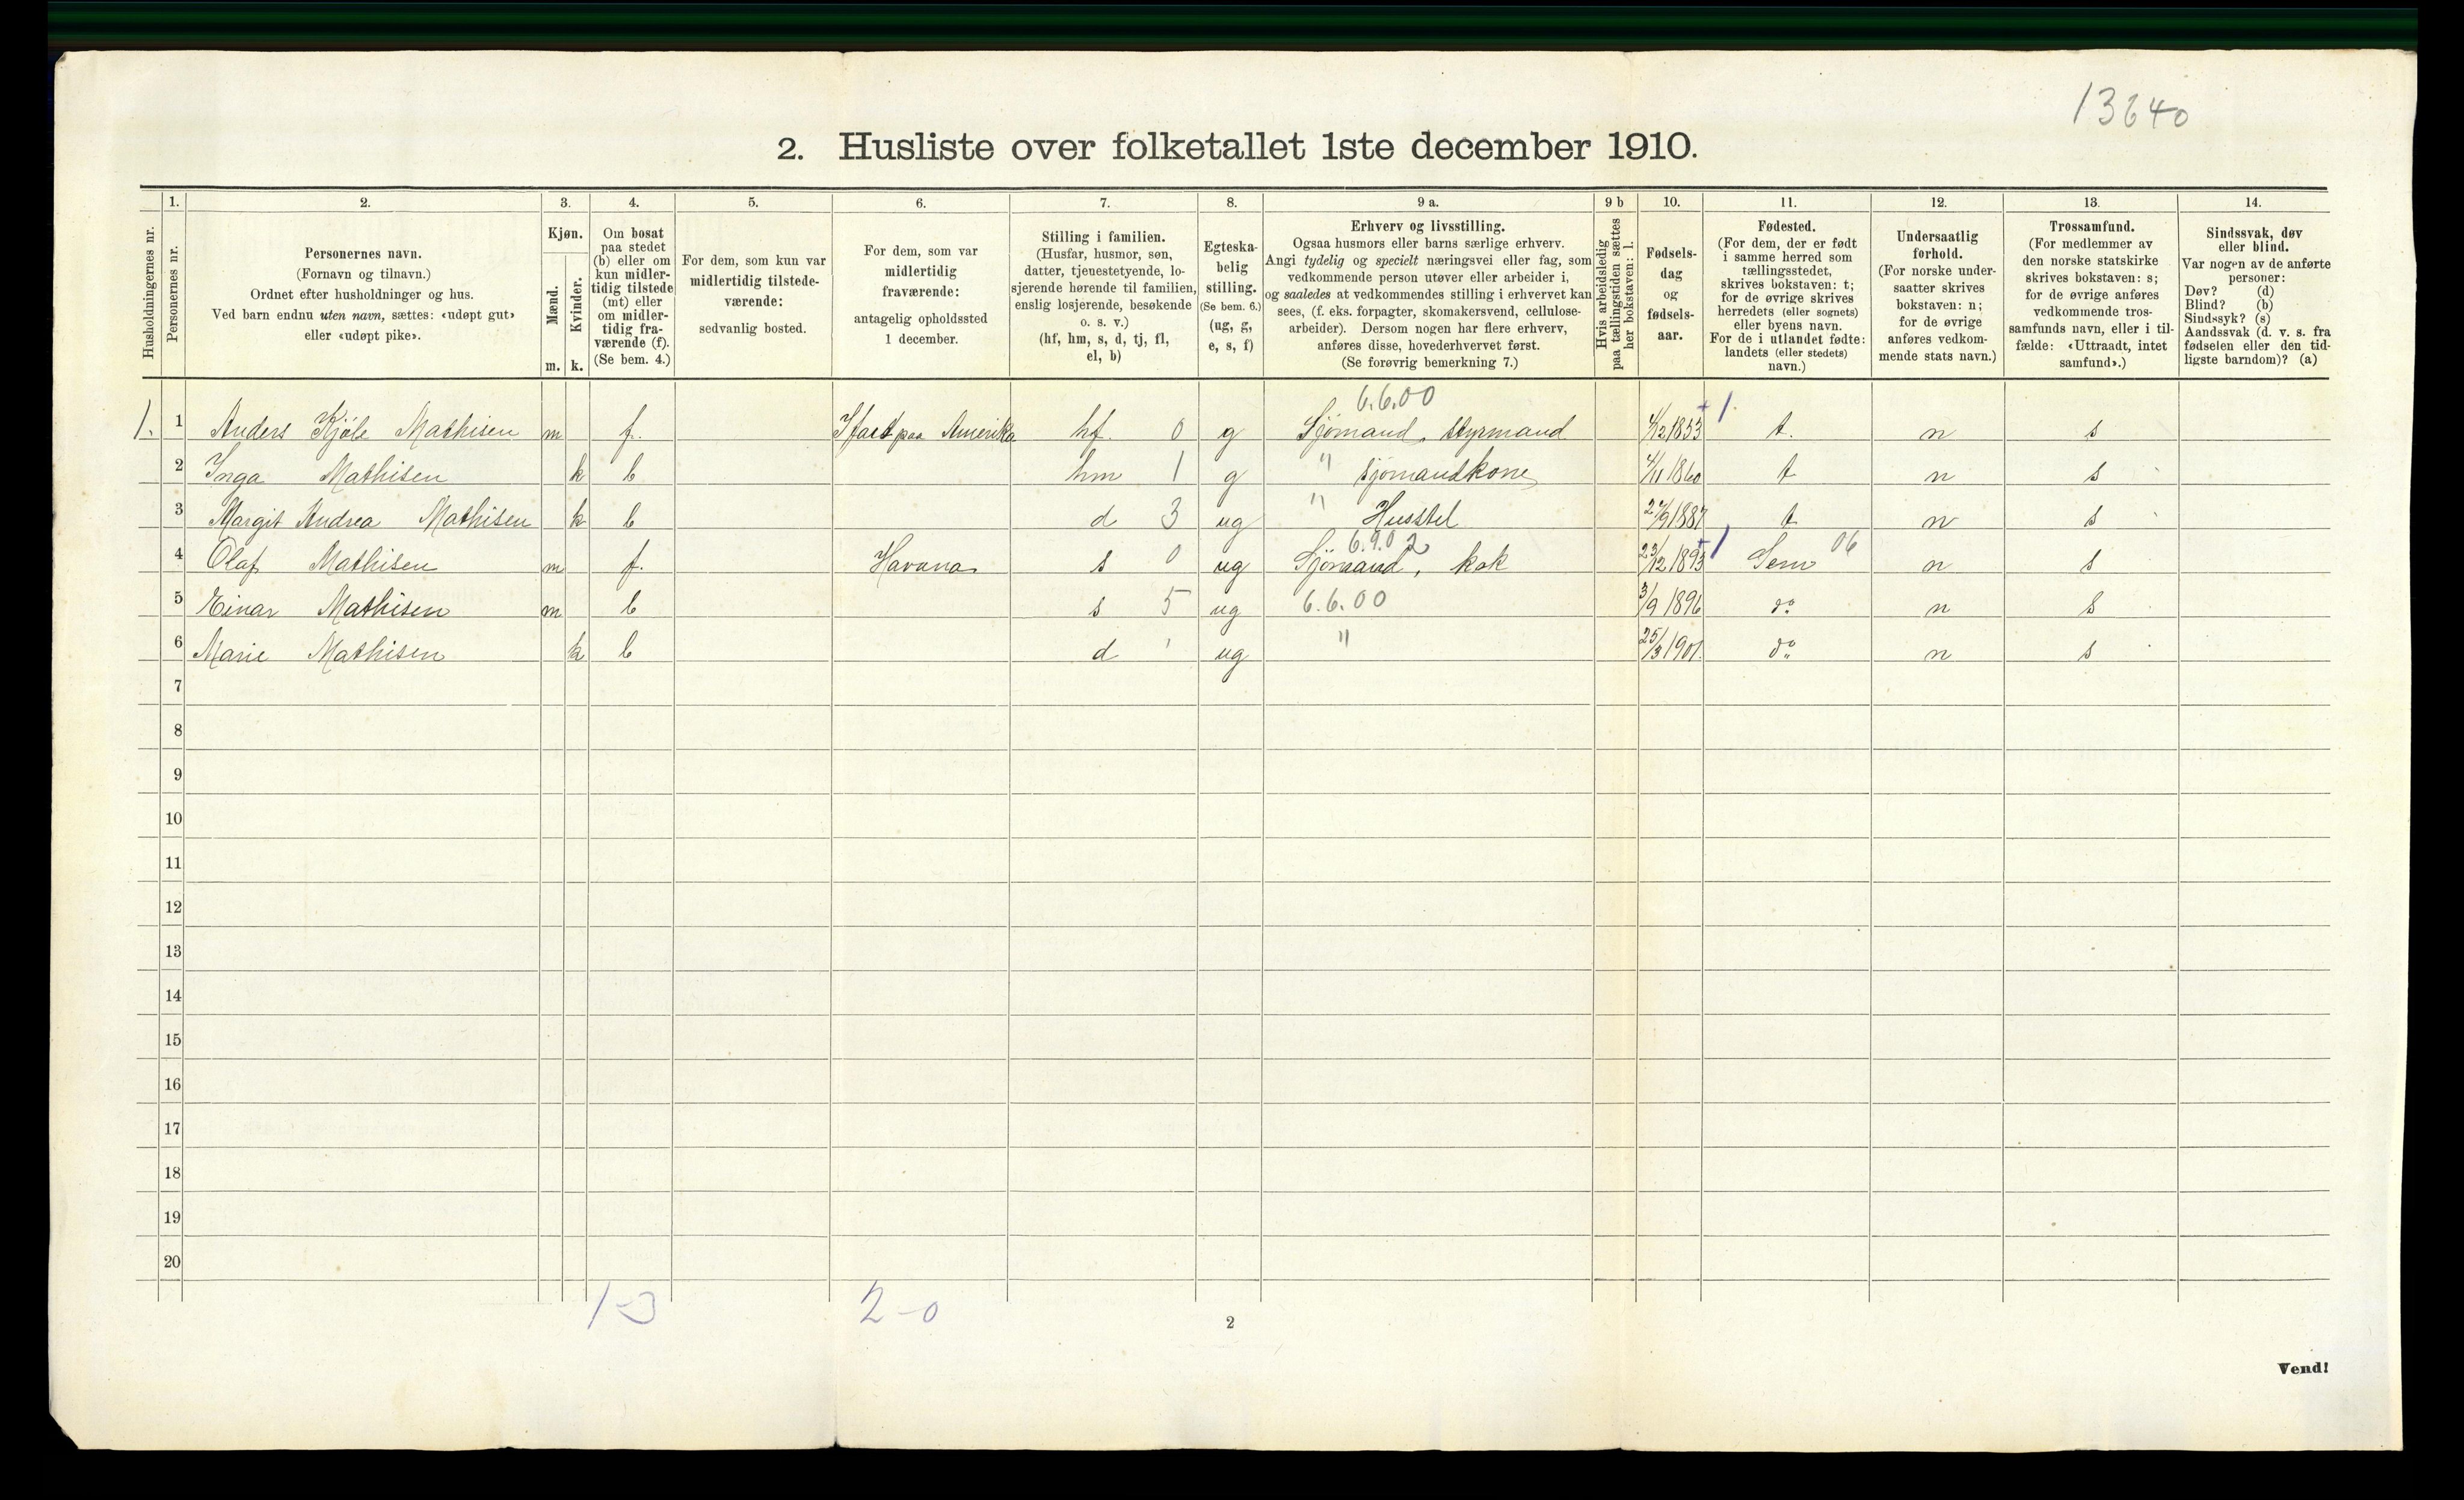 13640
2. Husliste over folketallet 1ste december 1910.
1. 2. 3. 4. 5. 6. 7. 8. 9 a. 9 b 10. 11. 12. 13. 14.
Husholdningernes nr.
Personernes nr.
Personernes navn.
(Fornavn og tilnavn.)
Ordnet efter husholdninger og hus.
Ved barn endnu uten navn, sættes: «udøpt gut»
eller «udøpt pike».
Kjøn.
Mænd.
Kvinder.
m. k.
Om bosat
paa stedet
(b) eller om
kun midler-
tidig tilstede
(mt) eller
om midler-
tidig fra-
værende (f).
(Se bem. 4.)
For dem, som kun var
midlertidig tilstede-
værende:
sedvanlig bosted.
For dem, som var
midlertidig
fraværende:
antagelig opholdssted
1 december.
Stilling i familien.
(Husfar, husmor, søn,
datter, tjenestetyende, lo-
sjerende hørende til familien,
enslig losjerende, besøkende
o. s. v.)
(hf, hm, s, d, tj, fl,
el, b)
Egteska-
belig
stilling.
(Se bem. 6.)
(ug, g,
e, s, f)
Erhverv og livsstilling.
Ogsaa husmors eller barns særlige erhverv.
Angi tydelig og specielt næringsvei eller fag, som
vedkommende person utøver eller arbeider i,
og saaledes at vedkommendes stilling i erhvervet kan
sees, (f. eks. forpagter, skomakersvend, cellulose-
arbeider). Dersom nogen har flere erhverv,
anføres disse, hovederhvervet først.
(Se forøvrig bemerkning 7.)
Hvis arbeidsledig
paa tællingstiden sættes
her bokstaven: l.
Fødsels-
dag
og
fødsels-
aar.
Fødested.
(For dem, der er født
i samme herred som
tællingsstedet,
skrives bokstaven: t;
for de øvrige skrives
herredets (eller sognets)
eller byens navn.
For de i utlandet fødte:
landets (eller stedets)
navn.)
Undersaatlig
forhold.
(For norske under-
saatter skrives
bokstaven: n;
for de øvrige
anføres vedkom-
mende stats navn.)
Trossamfund.
(For medlemmer av
den norske statskirke
skrives bokstaven: s;
for de øvrige anføres
vedkommende tros-
samfunds navn, eller i til-
fælde: «Uttraadt, intet
samfund».)
Sindssvak, døv
eller blind.
Var nogen av de anførte
personer:
Døv? (d)
Blind? (b)
Sindssyk? (s)
Aandssvak (d. v. s. fra
fødselen eller den tid-
ligste barndom)? (a)
6.6.00
1. 1 Anders Kjøle Mathisen m f. I fart paa Amerika hf. 0 g Sjømand, styrmand 4/12 1853 + 1 t. n s
2 Inga Mathisen k b hm 1 g " sjømandkone 4/11 1860 t n s
3 Margit Andrea Mathisen k b d 3 ug " Husstel 27/9 1887 t n s
6.9.02
4 Olaf Mathisen m f. Havana s 0 ug Sjømand, kok 23/12 1893 + 1 Sem 06 n s
5 Einar Mathisen m b s 5 ug 6.6.00 3/9 1896 do n s
6 Marie Mathisen k b d ' ug " 25/3 1901. do n s
7
8
9
10
11
12
13
14
15
16
17
18
19
20
1-3 2-0
2
Vend!